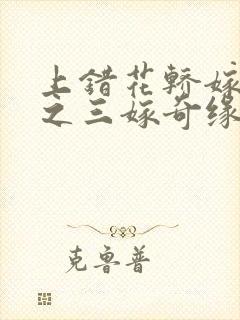 上错花轿嫁
之三嫁奇缘
克鲁普